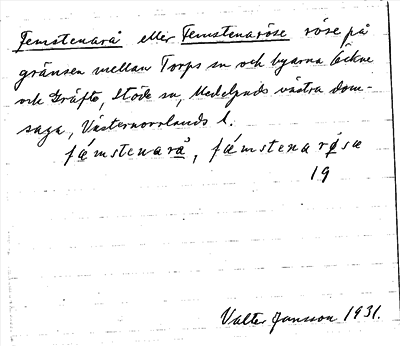 Femstenarå eller Femstenaröse röse på
gränsen mellan Torps sn och byarna Öckne
och Gräfte, Stöde sn, Medelpads västra dom-
saga, Västernorrlands l.
fǽmstenarå, fǽmstenarøsa
19
Valter Jansson 1931.